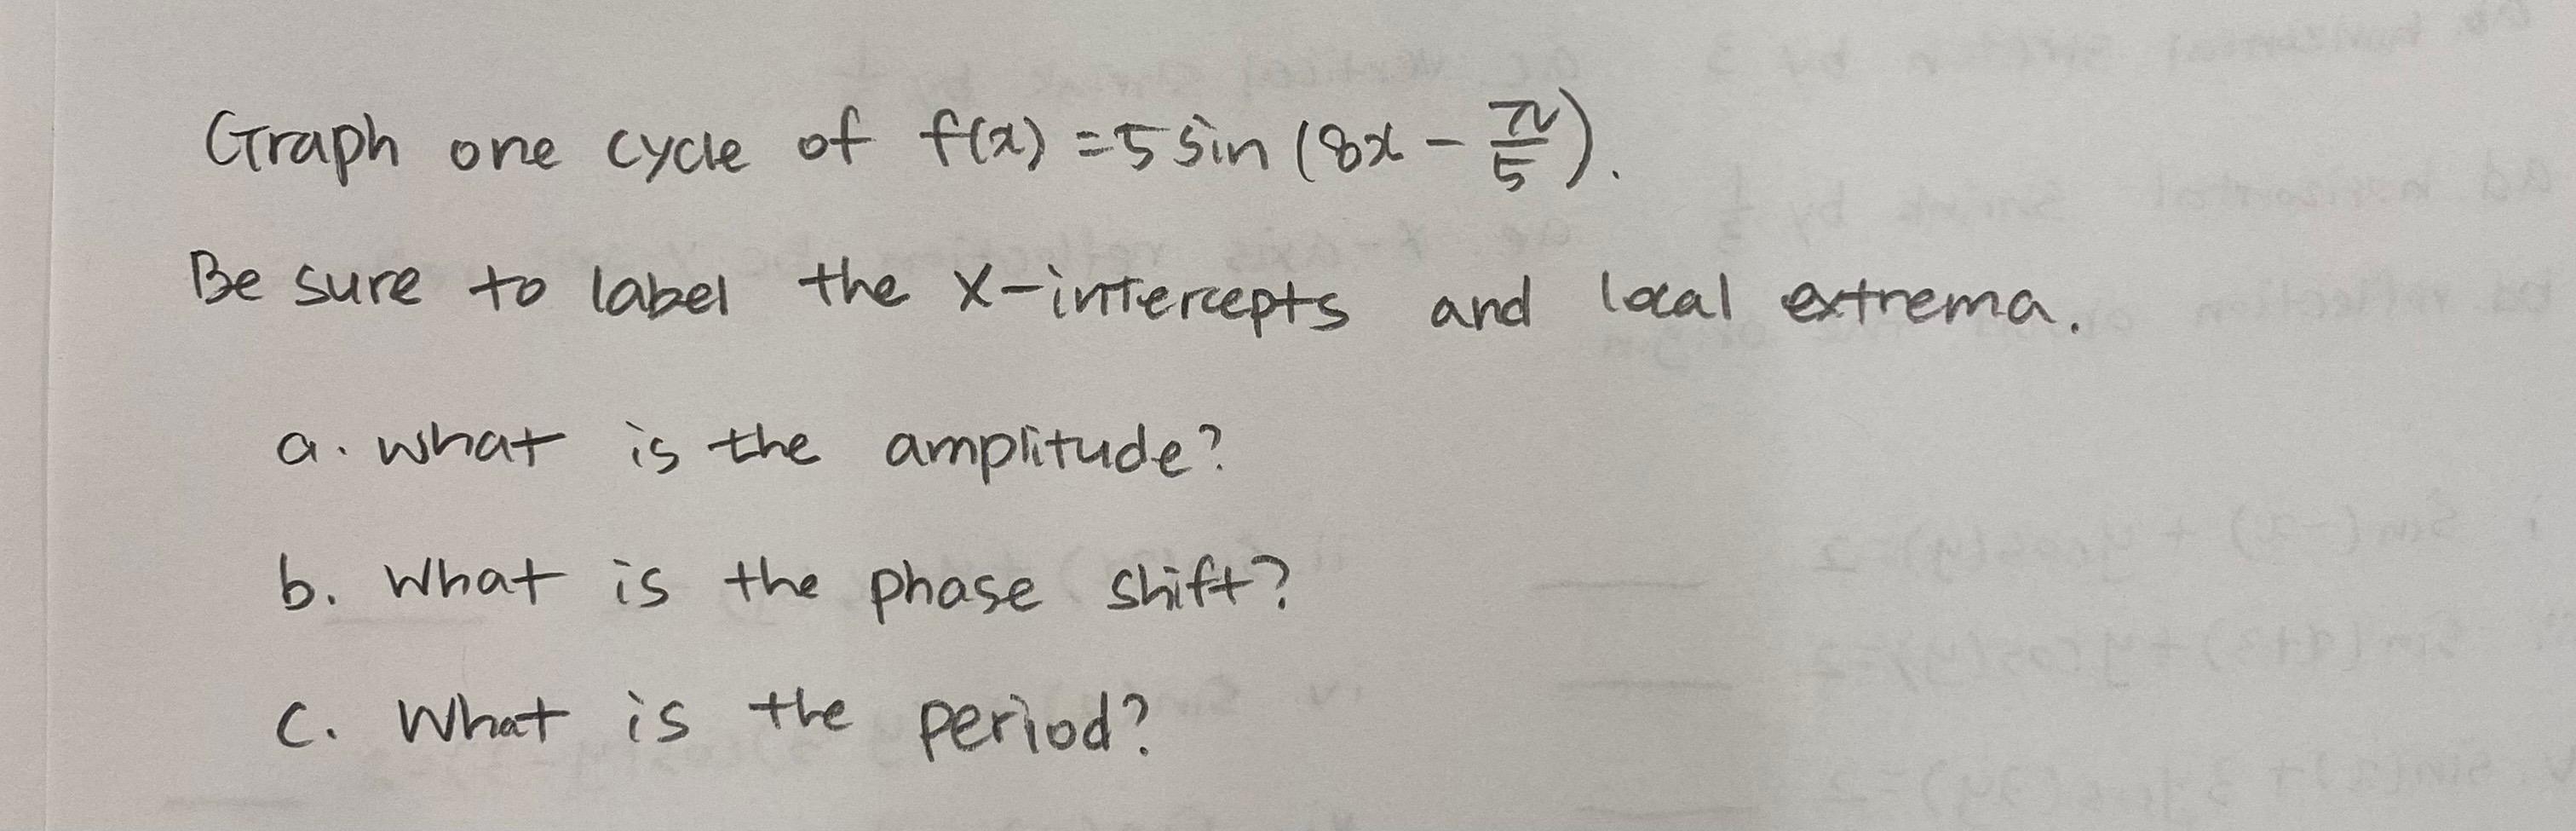 Graph one cycle of f(x) = 5 sin (8x - π/5).
Be sure to label the x-intercepts and local extrema.
a. what is the amplitude?
b. What is the phase shift?
c. What is the period?